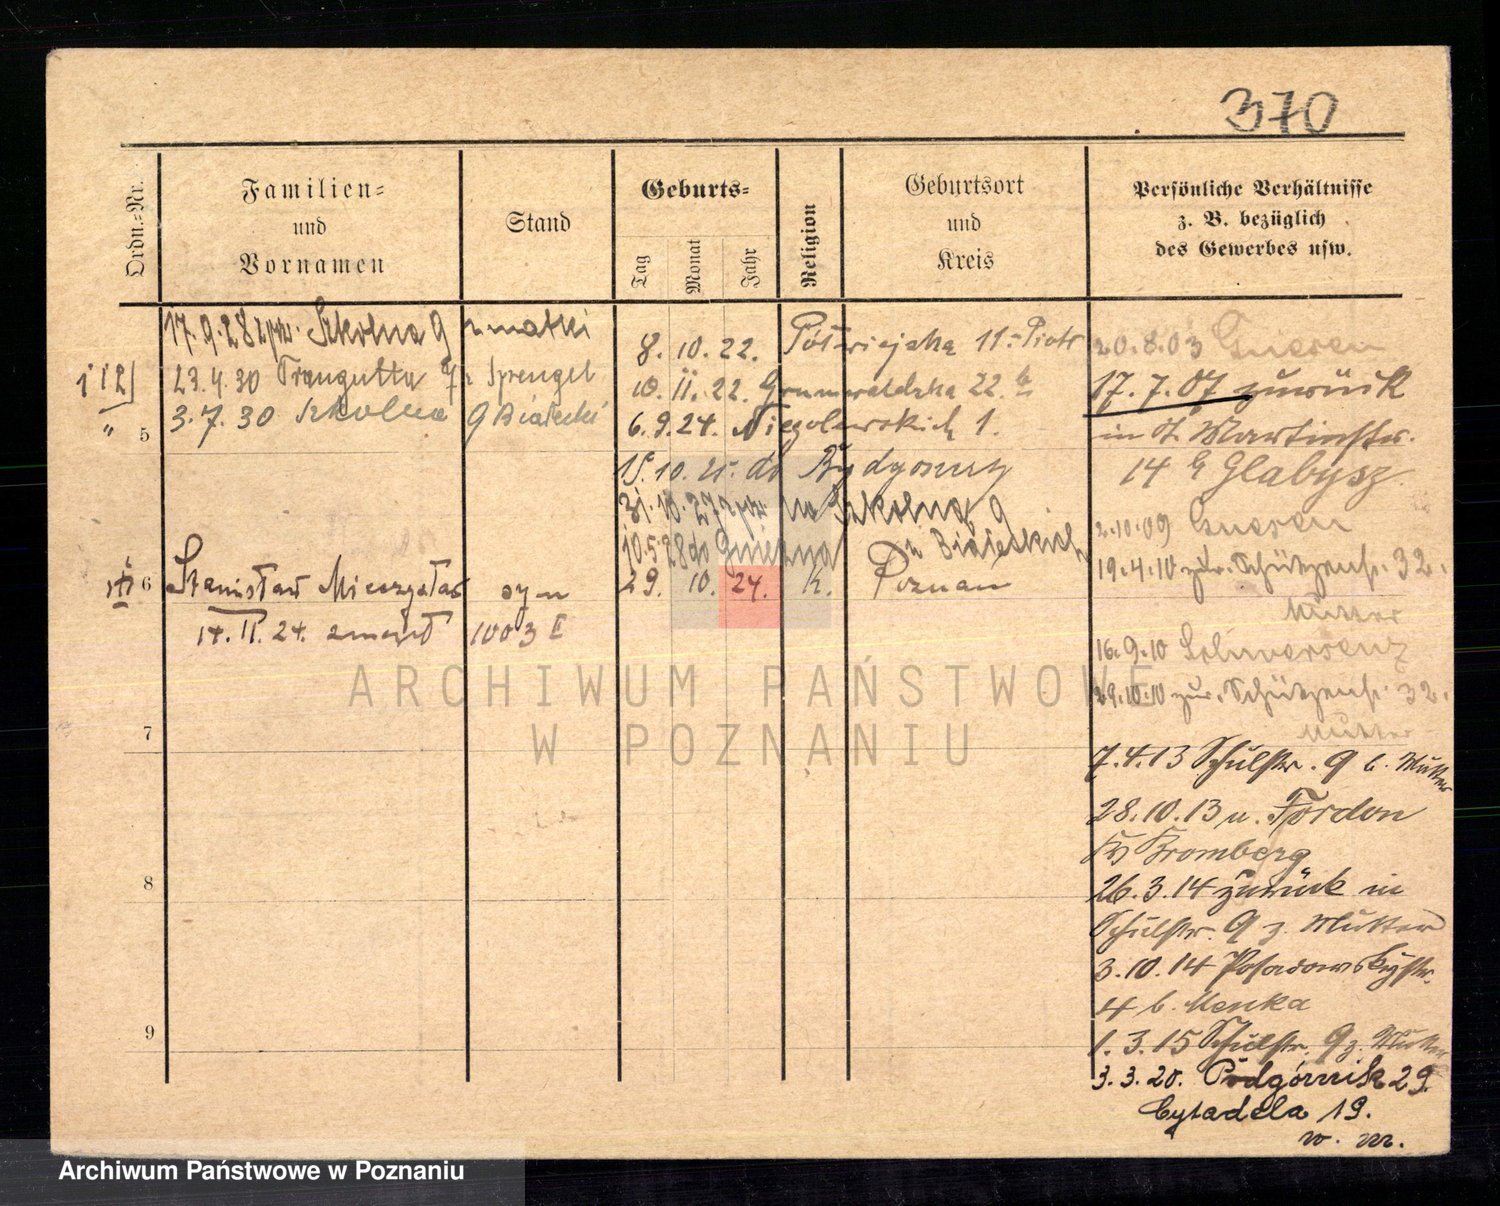 370
Ordn.=Nr.
Familien=
und
Vornamen
Stand
Geburts=
Tag
Monat
Jahr
Religion
Geburtsort
und
Kreis
Persönliche Verhältnisse
z. B. bezüglich
des Gewerbes usw.
17.9.28 Szkolna 9 z matki
23.4.30 Traugutta 7 Sprengel
3.7.30 Szkolna 9 Białecki
5
8. 10. 22. Półwiejska 11 Piotr
10. II. 22. Grunwaldzka 22
6. 9. 24. Niegolewskich 1.
15. 10. 25. do Bydgoszczy
31. 10. 27 na Szkolna 9
10.5.28 do Gniezna
Białeckich
6 Stanisław Mieczysław syn 29. 10. 24. k. Poznań
14. II. 24. zmarł 1003 II
7
8
9
20.8.03 Gnesen
17.7.07 zurück
in St. Martinstr.
14 b Glabysz
2.10.09 Gnesen
19.4.10 zur. Schützenstr. 32.
Mutter
16.9.10 Schwersenz
29.10.10 zur. Schützenstr. 32.
Mutter
7.4.13 Schulstr. 9 b. Mutter
28.10.13 n. Fordon
Kr Bromberg
26.3.14 zurück in
Schulstr. 9 z. Mutter
3.10.14 Posadowskystr.
4 b. Menka
1.3.15 Schulstr. 9 z. Mutter
3.3.20. Podgórnik 29.
Cytadela 19.
w. m.
ARCHIWUM PAŃSTWOWE
W POZNANIU
Archiwum Państwowe w Poznaniu